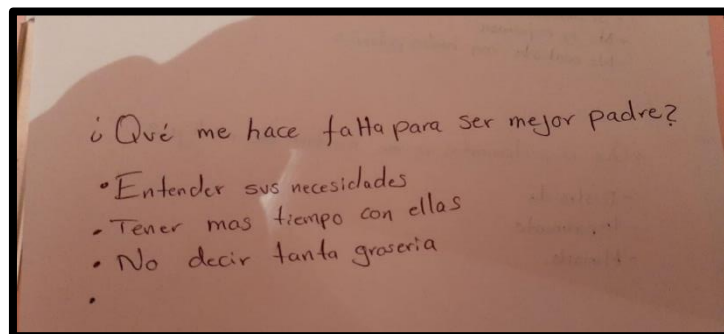 ¿Qué me hace falta para ser mejor padre?
• Entender sus necesidades
• Tener mas tiempo con ellas
• No decir tanta groseria
•